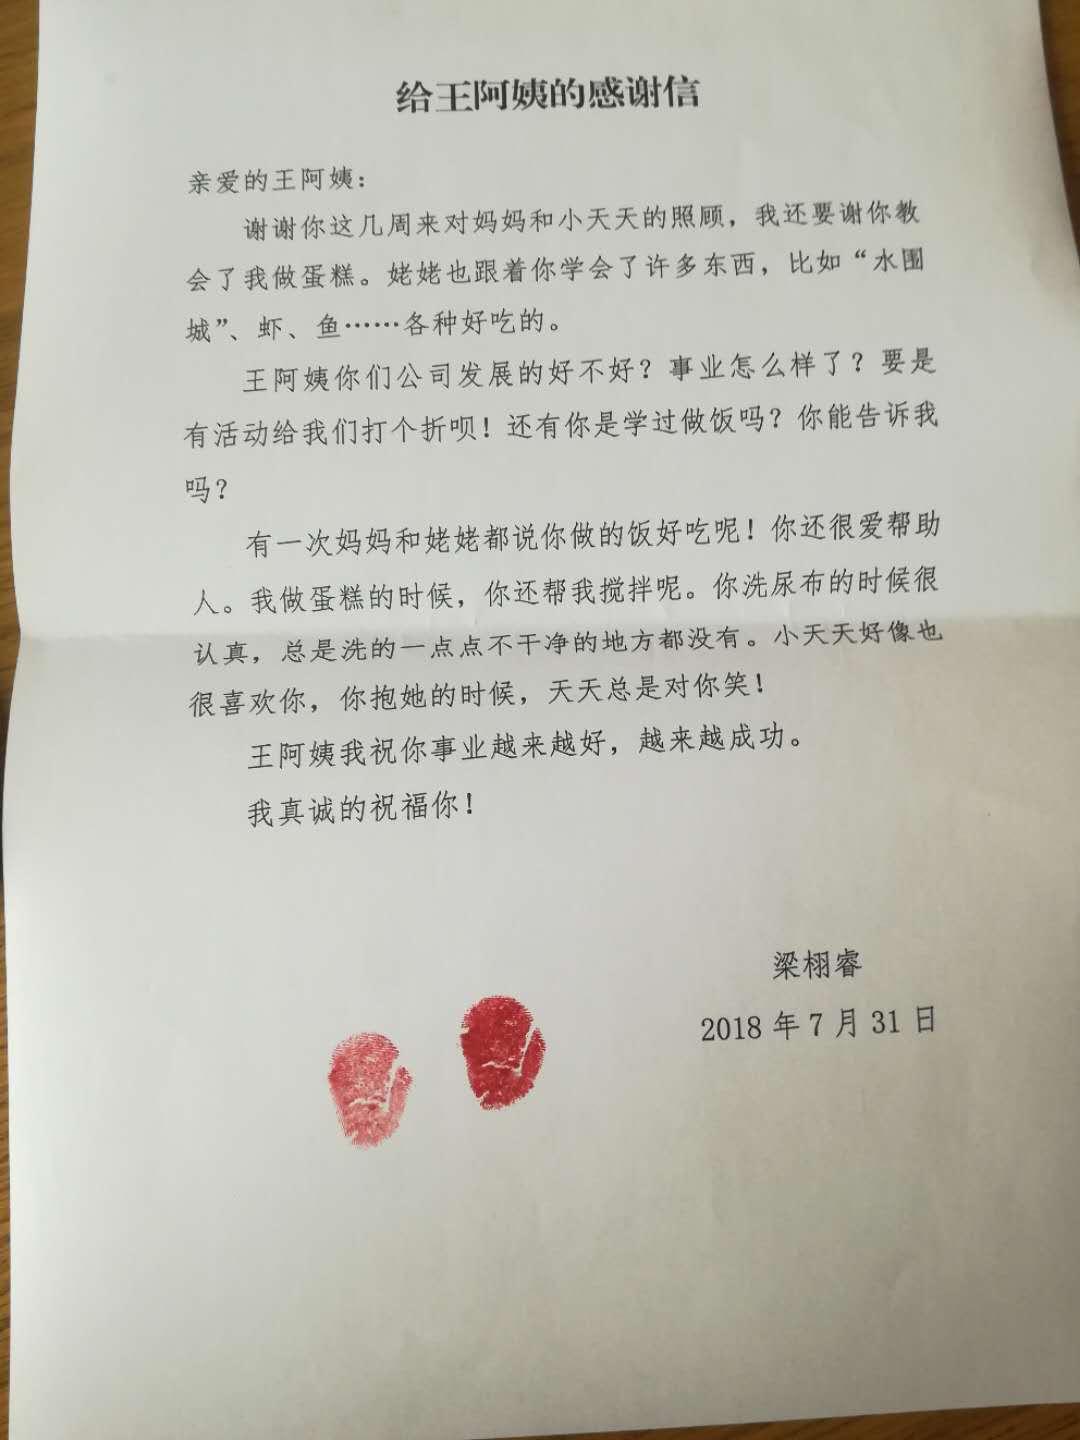 给王阿姨的感谢信
亲爱的王阿姨：
谢谢你这几周来对妈妈和小天天的照顾，我还要谢你教
会了我做蛋糕。姥姥也跟着你学会了许多东西，比如“水围
城”、虾、鱼……各种好吃的。
王阿姨你们公司发展的好不好？事业怎么样了？要是
有活动给我们打个折呗！还有你是学过做饭吗？你能告诉我
吗？
有一次妈妈和姥姥都说你做的饭好吃呢！你还很爱帮助
人。我做蛋糕的时候，你还帮我搅拌呢。你洗尿布的时候很
认真，总是洗的一点点不干净的地方都没有。小天天好像也
很喜欢你，你抱她的时候，天天总是对你笑！
王阿姨我祝你事业越来越好，越来越成功。
我真诚的祝福你！
梁栩睿
2018 年 7 月 31 日